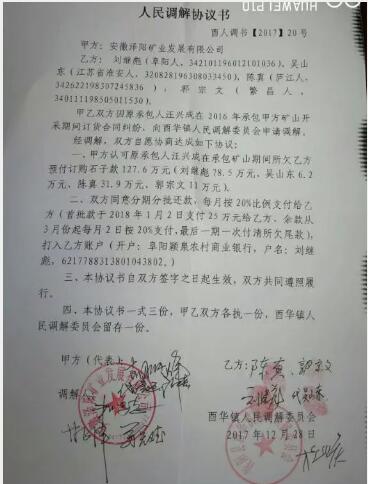 HUAWEI P10
人民调解协议书
西人调书【2017】20号
甲方：安徽泽阳矿业发展有限公司
乙方：刘继彪（阜阳人，342101196012101036）、吴山
东（江苏省淮安人，320828196308033450）、陈真（庐江人，
342622198307245836）、郭宗文（繁昌人，
340111198505011530）
甲乙双方因原承包人汪兴成在2016年承包甲方矿山开
采期间订货合同纠纷，向西华镇人民调解委员会申请调解。
经调解，双方自愿协商达成如下协议：
一、甲方认可原承包人汪兴成在承包矿山期间所欠乙方
预付订购石子款127.6万元（刘继彪78.5万元、吴山东6.2
万元、陈真31.9万元、郭宗文11万元）。
二、双方同意分期分批还款，每月按20%比例支付给乙
方（首批款于2018年1月2日支付25万元给乙方、余款从
3月份起每月2日按20%支付，最后一期一次付清所欠尾款），
打入乙方账户（开户：阜阳颍泉农村商业银行，户名：刘继
彪，6217788313801043802。）
三、本协议书自双方签字之日起生效，双方共同遵照履
行。
四、本协议书一式三份，甲乙双方各执一份，西华镇人
民调解委员会留存一份。
甲方（代表）
乙方：陈真 郭宗文
调解
西华镇人民调解委员会
2017年12月28日